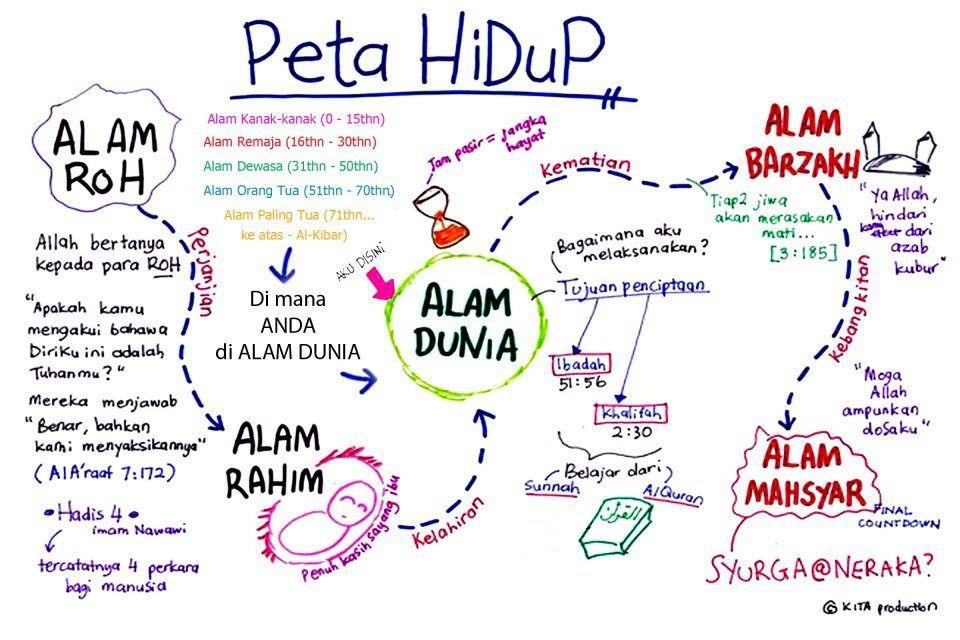 Peta HiDuP
ALAM
ROH
Alam Kanak-kanak (0 - 15thn)
Alam Remaja (16thn - 30thn)
Alam Dewasa (31thn - 50thn)
Alam Orang Tua (51thn - 70thn)
Alam Paling Tua (71thn...
ke atas - Al-Kibar)
Allah bertanya
kepada para ROH
"Apakah kamu
mengakui bahawa
Diriku ini adalah
Tuhanmu?"
Mereka menjawab
"Benar, bahkan
kami menyaksikannya"
(AlA'raaf 7:172)
• Hadis 4 •
imam Nawawi
tercatatnya 4 perkara
bagi manusia
Perjanjian
Di mana
ANDA
di ALAM DUNIA
AKU DISINI
ALAM
RAHIM
Penuh kasih sayang ibu
Kelahiran
Jam pasir = jangka
hayat
ALAM
DUNIA
Bagaimana aku
melaksanakan?
Tujuan penciptaan
Ibadah
51:56
Khalifah
2:30
Belajar dari
Sunnah
AlQuran
القرآن
Kematian
Tiap2 jiwa
akan merasakan
mati...
[3:185]
ALAM
BARZAKH
"Ya Allah,
hindari
dari
azab
kubur"
Kebangkitan
"Moga
Allah
ampunkan
dosaku"
ALAM
MAHSYAR
FINAL
COUNTDOWN
SYURGA@NERAKA?
© KITA production